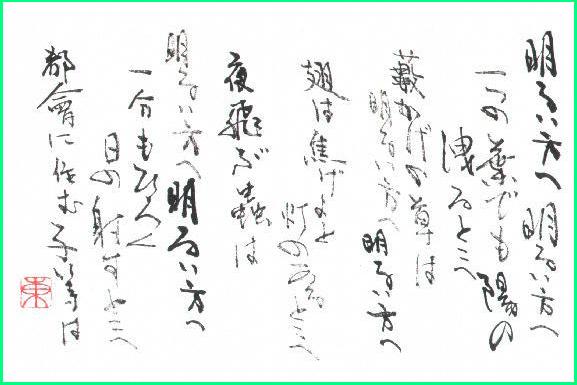 明るい方へ 明るい方へ
一つの葉でも 陽の
洩るとこへ
藪かげの草は
明るい方へ 明るい方へ
翅は焦げよと
灯のあるとこへ
夜飛ぶ蟲は
明るい方へ 明るい方へ
一分もひろく
日の射すとこへ
都會に住む子等は
東